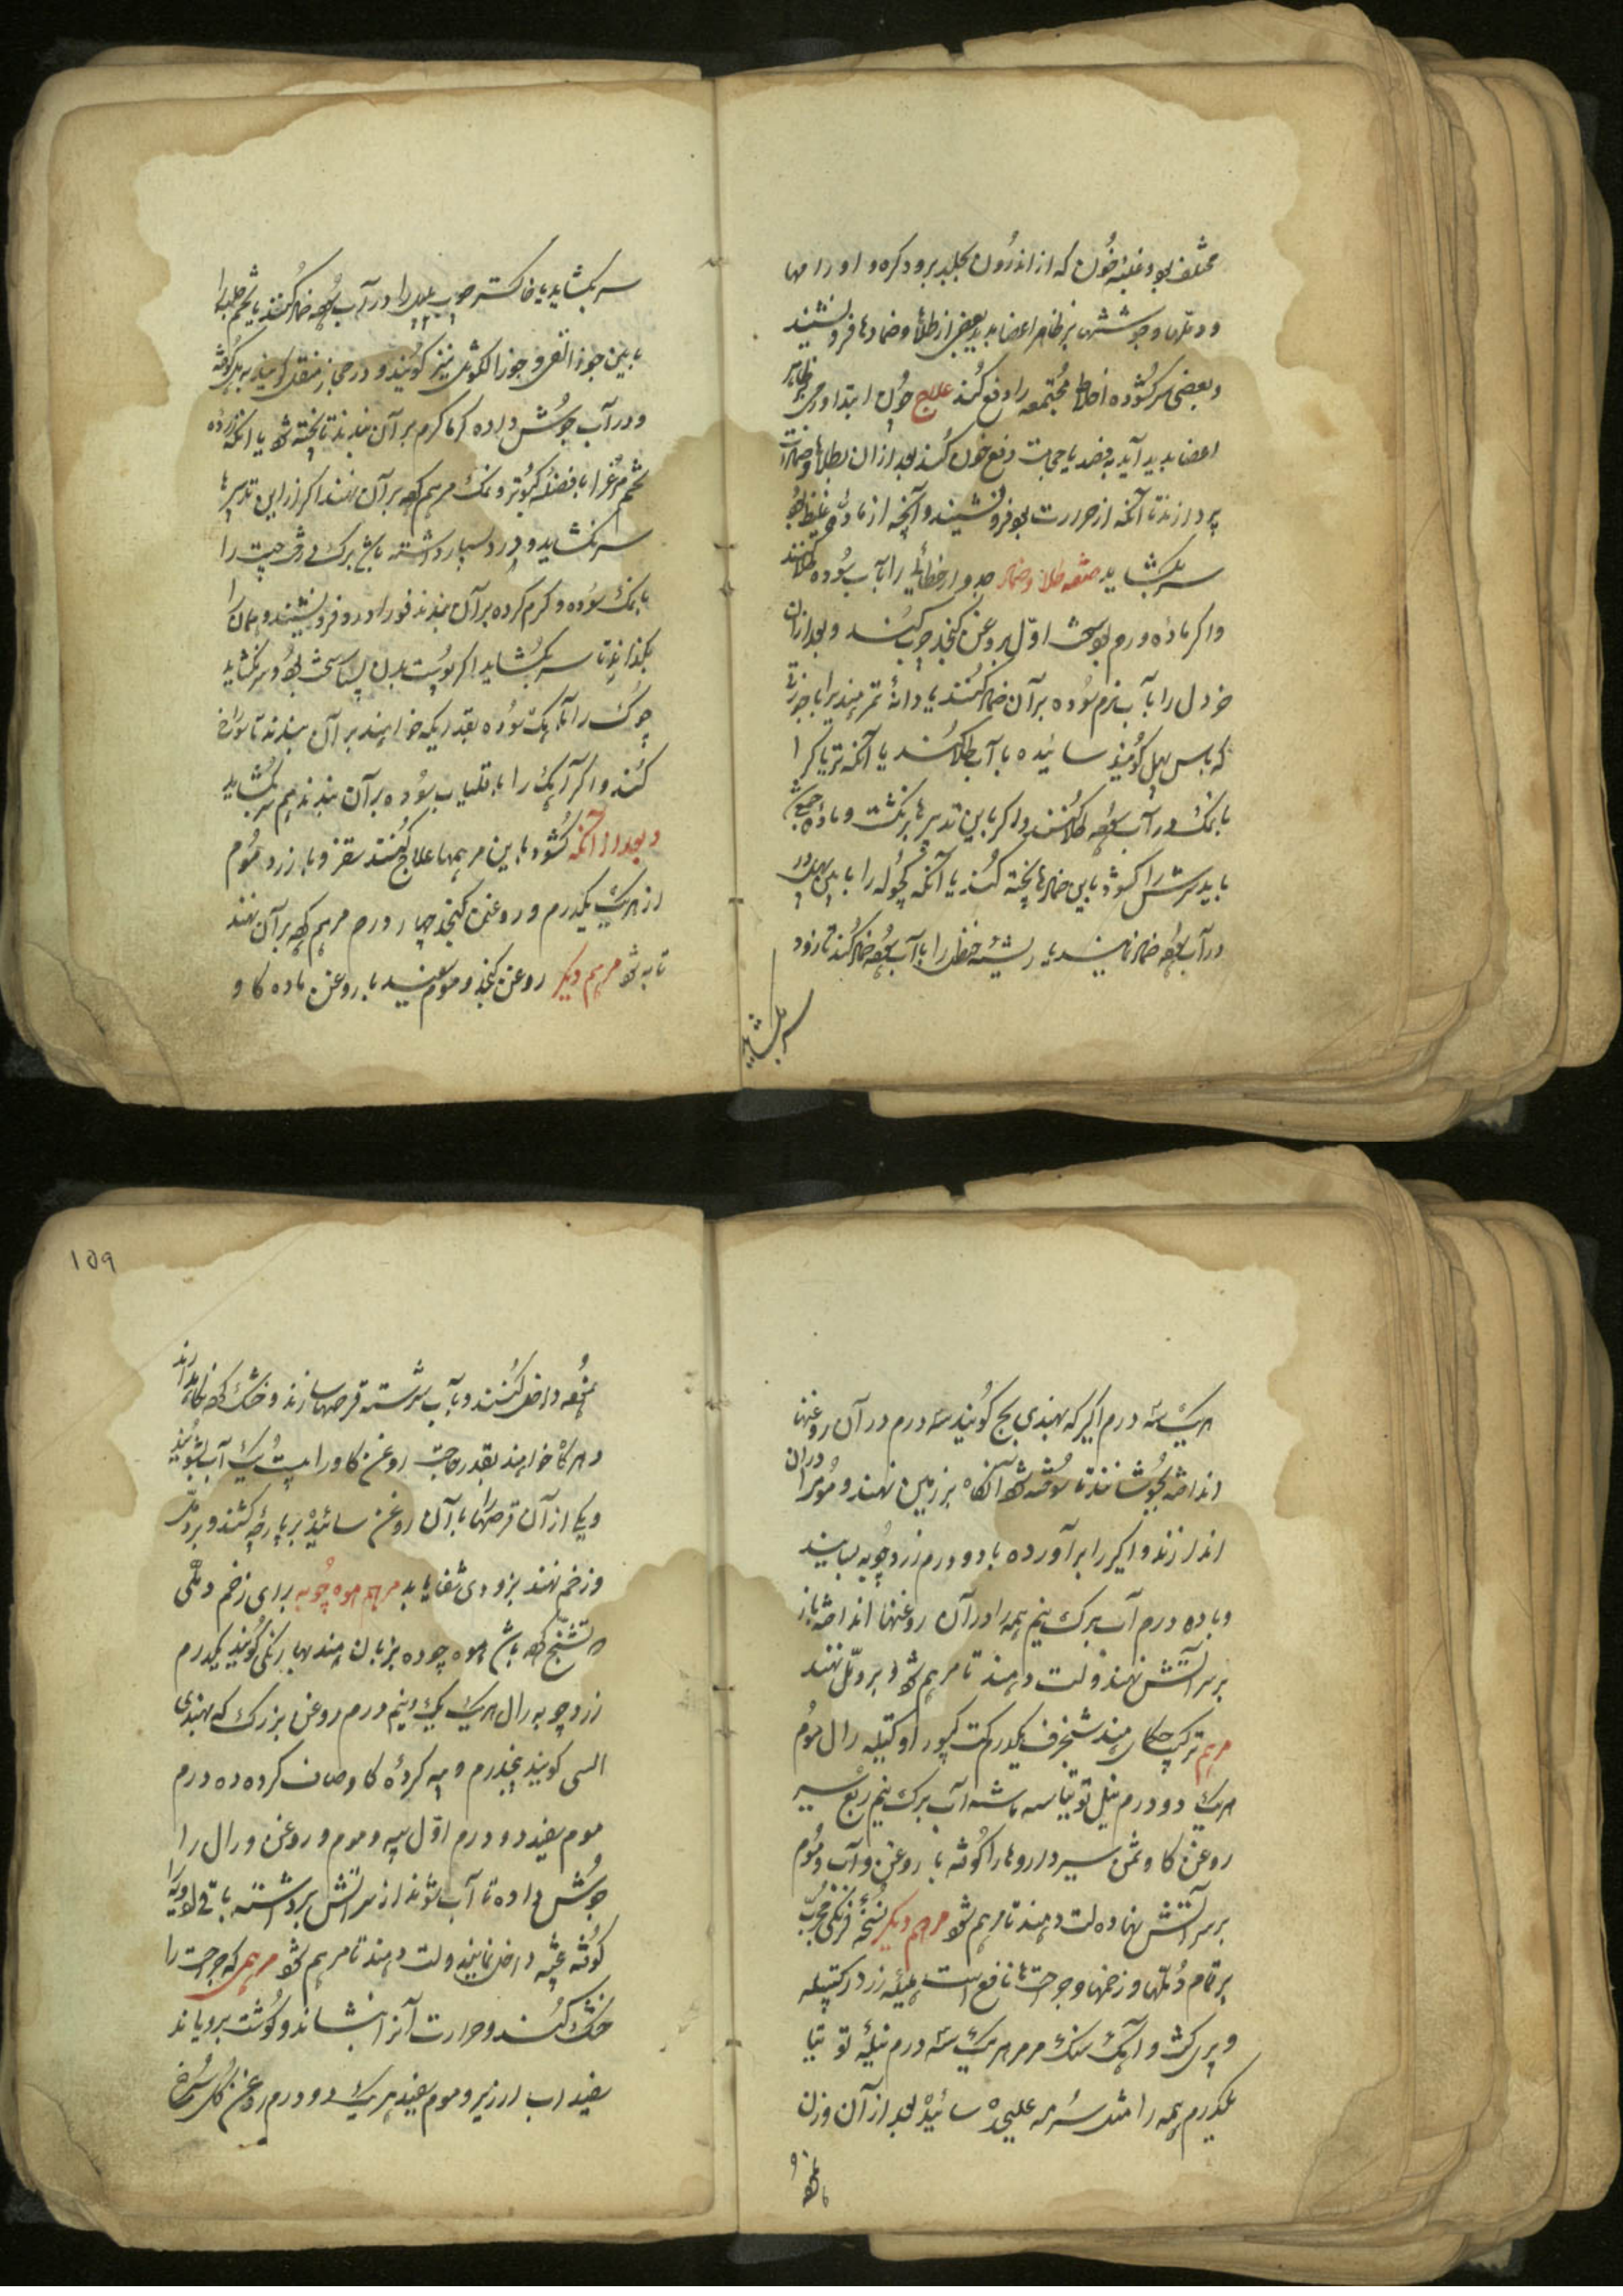 مختلف بود و غلبه خون که از اندرون بجلد برود کره و اورامها
و دملها و جوششها بر ظاهر اعضا بدید بعضی از طلاها و ضمادها فرو نشیند
و بعضی سر کشوده اخلاط مجتمعه را دفع کند علاج چون ابتدا ورمی بر ظاهر
اعضا بدید آید بفصد یا حجامت دفع خون کنند بعد از آن بطلاها و ضمادات
پردازند تا آنکه از حرارت بود فرو نشیند و آنچه از ماده غلیظ بود
سر بکشاید صفت طلا و ضماد جدوار خطائی را بآب سوده طلا کنند
و اگر ماده ورم بود سخت اول بروغن کنجد چرب کنند و بعد از آن
خردل را بآب نرم سوده بر آن ضماد کنند یا دانه تمر هندی را با جوزی
که باس پهل گویند سائیده با آب طلا کنند یا آنکه تریاک را
با نمک در آب طلا کنند و اگر باین تدبیرها برنگشت و ماده جمع شد
باید سرش را کشود باین ضمادها پخته کنند یا آنکه کچوله را با
در آب ضماد نمایند یا ریشه حنظل را با آب ضماد کنند تا زود
سر بکشاید
سر بکشاید یا خاکستر چوب را در آب ضماد کنند یا تخم حلبه را
با بین جوز القی و جوز الکوثل نیز گویند و در حجاز منقل گویند کوفته
و در آب جوش داده گرما گرم بر آن بندند تا پخته شود یا آنکه زرده
تخم مرغ را با فضله کبوتر و نمک مرهم بر آن نهند اگر از این تدبیرها
سر نکشاید و درد بسیار داشته باشد برگ درخت چیت را
با نمک سوده و گرم کرده بر آن بندند فورا درد فرو نشیند و همان را
بگذارند تا سر بکشاید اگر پوست بدن بسیار سخت بود و سر نکشاید
چوک را با آهک سوده بقدریکه خواهند بر آن بندند تا سوراخ
کند و اگر آهک را با قلیاب سوده بر آن بندند هم سر بکشاید
و بعد از آنکه کشود باین مرهمها علاج کنند سقز و بارزد و موم
از هر یک یکدرم و روغن کنجد چهار درم مرهم بر آن نهند
تا به شود مرهم دیگر روغن کنجد و موم سفید با روغن ماده گاو
هر یک سه درم اکیر که بهندی بج گویند سه درم در آن روغنها
انداخته بجوشانند تا سوخته شود آنگاه بر زمین نهند و موم را در آن
اندازند و اکیر را برآورده با دو درم زردچوبه بسایند
و با ده درم آب برگ نیم همه را در آن روغنها انداخته باز
بر سر آتش نهند و لت دهند تا مرهم شود و بر دمل نهند
مرهم ترکیب حکمای هند شنجرف یکدرم کت کپور او کتیله رال موم
هر یک دو درم نیل توتیا سه ماشه آب برگ نیم ربع سیر
روغن گاو ثمن سیر داروها را کوفته با روغن و آب و موم
بر سر آتش نهاده لت دهند تا مرهم شود مرهم دیگر نسخه فرنگی مجرب
بر تمام دملها و زخمها و جراحتها نافع است هلیله زرد کتیله
و پری کت و آهک سنگ مرمر هر یک سه درم نیله توتیا
یکدرم همه را مثل سرمه علیحده سائیده بعد از آن وزن
۱۵۹
نموده داخل کنند و بآب سرشته قرصها سازند و خشک نموده نگاه دارند
و هر گاه خواهند بقدر حاجت روغن گاو را بیست و یک آب بشویند
و یکی از آن قرصها را با آن روغن سائیده بر پارچه کشند و بر دمل
و زخم نهند بزودی شفا یابد مرهم هوه چوبه برای زخم و دملی
که تشنج باشد هوه چوده بزبان هند بهارنکی گویند یکدرم
زردچوبه رال هر یک یک و نیم درم روغن بزرک که بهندی
السی گویند پنجدرم و پیه گرده گاو صاف کرده ده درم
موم سفید دو درم اول پیه و موم و روغن و رال را
جوش داده تا آب شوند از سر آتش برداشته باقی ادویه را
کوفته بیخته داخل نمایند و لت دهند تا مرهم شود مرهمی که جراحت را
خشک کنند و حرارت آنرا بنشاند و گوشت برویاند
سفیداب ارزیر و موم سفید هر یک دو درم روغن گل سرخ